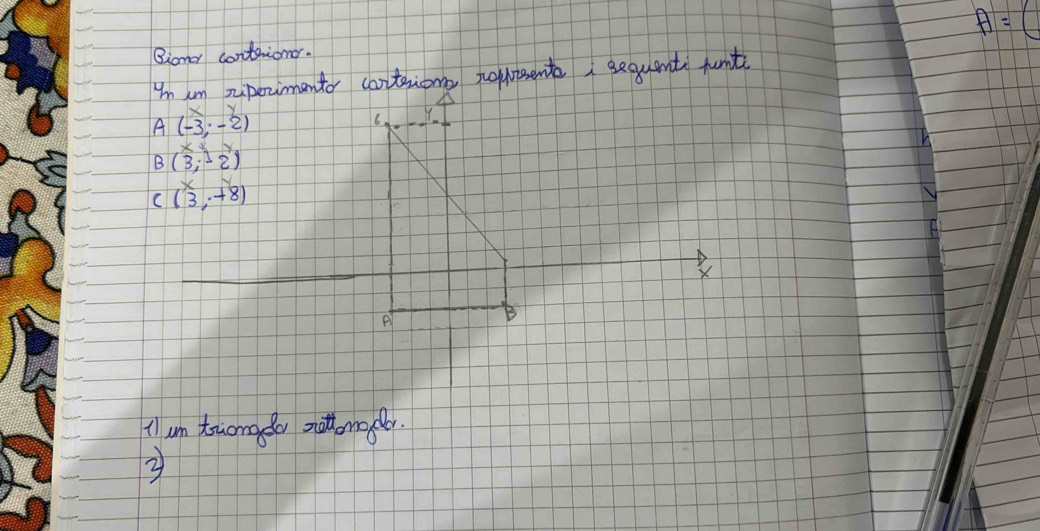 Piano cartesiano.
In un riferimento cartesiano rappresenta i seguenti punti
x y
A (-3; -2)
x y
B (3; -2)
x y
C (3; +8)
C
Y
X
A
B
1) un triangolo rettangolo.
2)
A = (